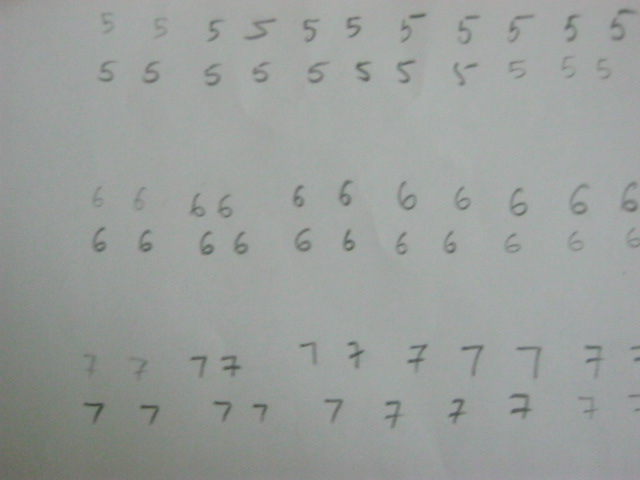 5 5 5 5 5 5 5 5 5 5 5
5 5 5 5 5 5 5 5 5 5 5
6 6 6 6 6 6 6 6 6 6 6
6 6 6 6 6 6 6 6 6 6 6
7 7 7 7 7 7 7 7 7 7
7 7 7 7 7 7 7 7 7